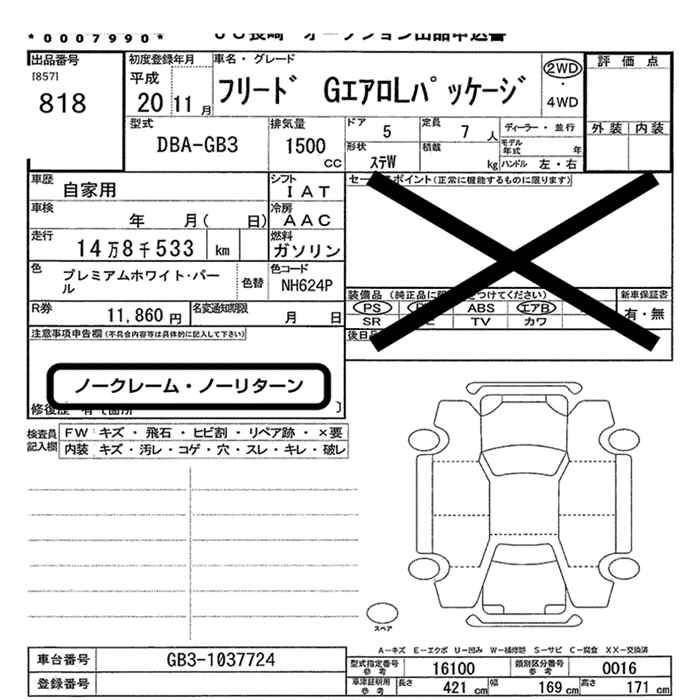 *0007990* JU長崎 オークション出品申込書
出品番号 初度登録年月 車名・グレード 評価点
[857] 平成 2WD
818 20 11月 フリード GエアロLパッケージ ・
4WD
型式 排気量 ドア 5 定員 7人 ディーラー・並行 外装 内装
DBA-GB3 1500 CC 形状 ステW 積載 kg モデル年式 年
ハンドル 左・右
車歴 自家用 シフト IAT セールスポイント(正常に機能するものに限ります)
車検 年 月( 日) 冷房 AAC
走行 14万8千533 km 燃料 ガソリン
色 プレミアムホワイト・パール 色替 色コード NH624P
装備品 (純正品に つけてください) 新車保証書
R券 11,860円 名変通知期限 月 日 PS ABS エアB 有・無
SR TV カワ
注意事項申告欄(不具合内容等は具体的に記入して下さい) 後日
ノークレーム・ノーリターン
修復歴 有(箇所 )
検査員記入欄 FW キズ・飛石・ヒビ割・リペア跡・×要
内装 キズ・汚レ・コゲ・穴・スレ・キレ・破レ
スペア
A-キズ E-エクボ U-凹み W-補修跡 S-サビ C-腐食 XX-交換済
車台番号 GB3-1037724 型式指定番号 参考 16100 類別区分番号 参考 0016
登録番号 車庫証明用 参考 長さ 421cm 幅 169cm 高さ 171cm